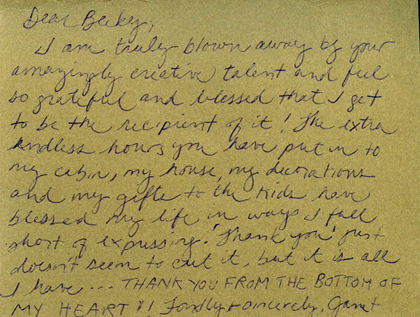 Dear Becky,
I am truly blown away by your
amazingly creative talent and feel
so grateful and blessed that I get
to be the recipient of it! The extra
endless hours you have put in to
my cabin, my house, my decorations
and my gifts to the kids have
blessed my life in ways I fall
short of expressing. 'Thank you' just
doesn't seem to cut it, but it is all
I have... THANK YOU FROM THE BOTTOM OF
MY HEART! Fondly & sincerely,